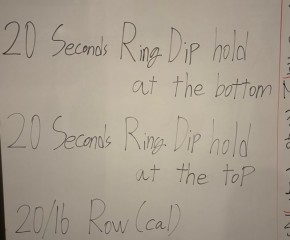 20 Seconds Ring Dip hold
at the bottom
20 Seconds Ring Dip hold
at the top
20/16 Row (cal)